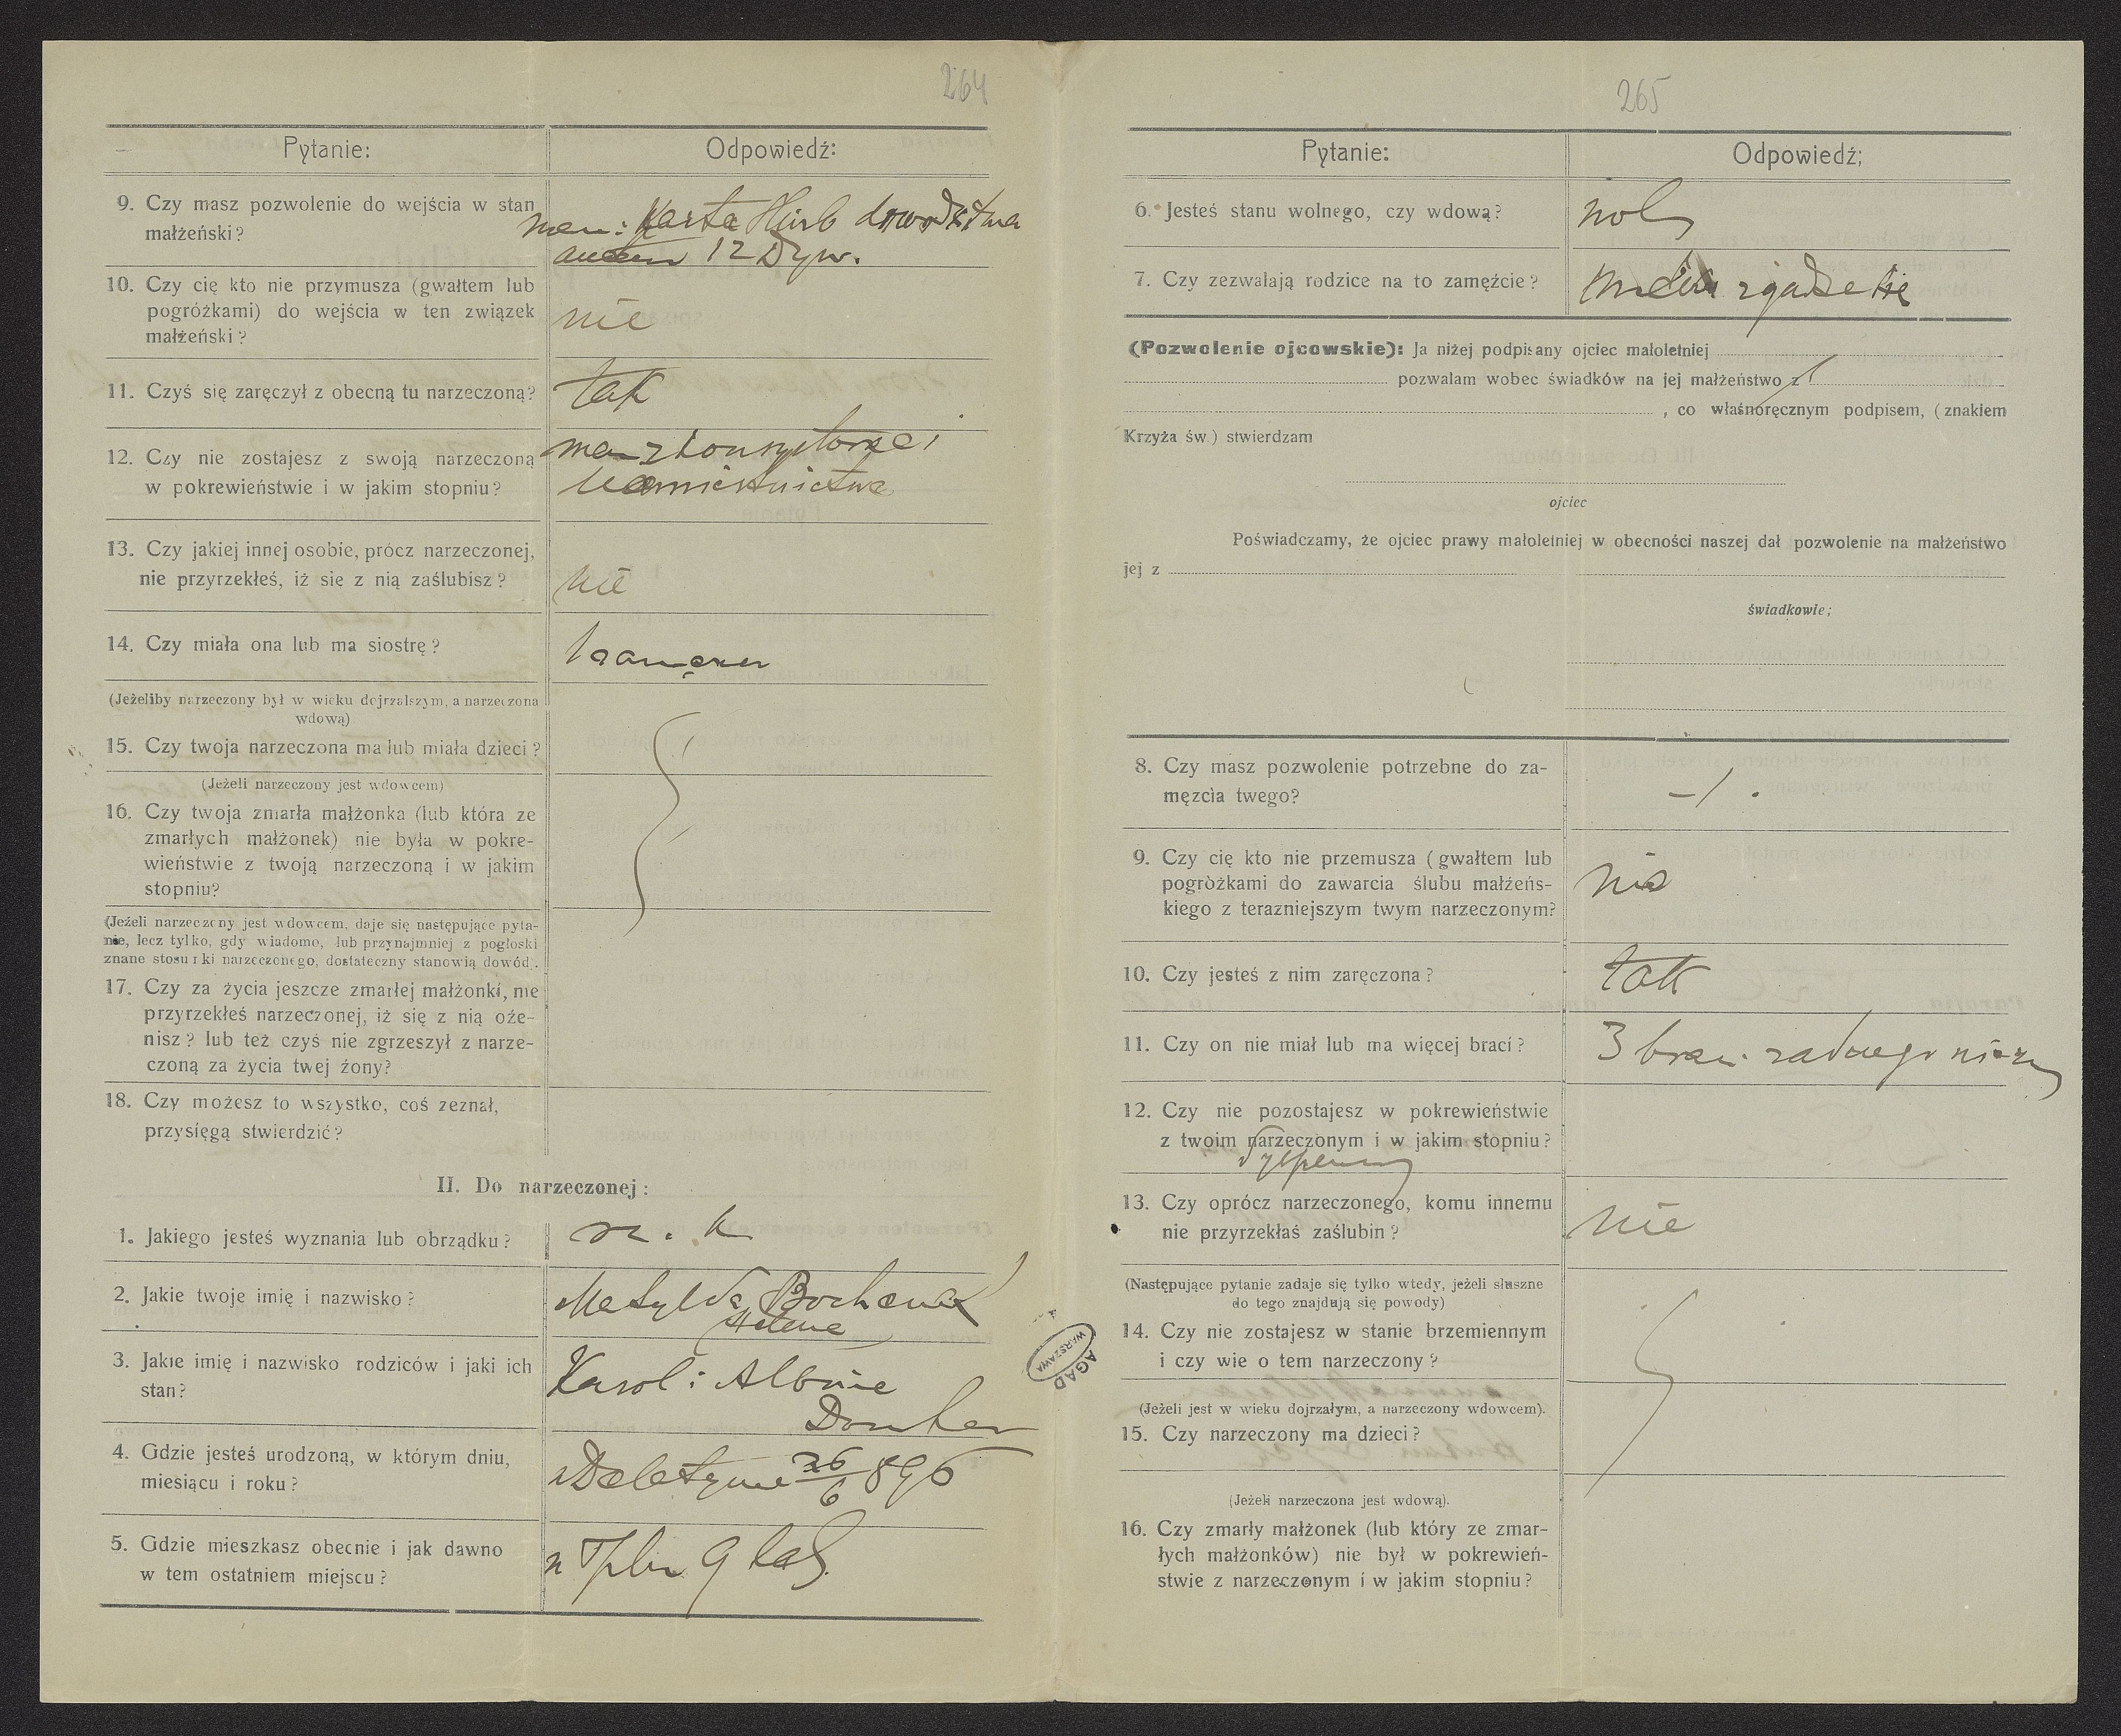 264
Pytanie:
Odpowiedź:
9. Czy masz pozwolenie do wejścia w stan
małżeński?
Karta
12 Dyw.
10. Czy cię kto nie przymusza (gwałtem lub
pogróżkami) do wejścia w ten związek
małżeński?
nie
11. Czyś się zaręczył z obecną tu narzeczoną?
tak
12. Czy nie zostajesz z swoją narzeczoną
w pokrewieństwie i w jakim stopniu?
13. Czy jakiej innej osobie, prócz narzeczonej,
nie przyrzekłeś, iż sie z nią zaślubisz?
nie
14. Czy miała ona lub ma siostrę?
(Jeżeliby narzeczony był w wieku dojrzalszym, a narzeczona
wdową)
15. Czy twoja narzeczona ma lub miała dzieci?
(Jeżeli narzeczony jest wdowcem)
16. Czy twoja zmarła małżonka (lub która ze
zmarłych małżonek) nie była w pokre-
wieństwie z twoją narzeczoną i w jakim
stopniu?
(Jeżeli narzeczony jest wdowcem, daje się następujące pyta-
nie, lecz tylko, gdy wiadome, lub przynajmniej z pogłoski
znane stosunki narzeczonego, dostateczny stanowią dowód).
17. Czy za życia jeszcze zmarłej małżonki, nie
przyrzekłeś narzeczonej, iż się z nią oże-
nisz? lub też czyś nie zgrzeszył z narze-
czoną za życia twej żony?
18. Czy możesz to wszystko, coś zeznał,
przysięgą stwierdzić?
II. Do narzeczonej:
1. Jakiego jesteś wyznania lub obrządku?
rz. k
2. Jakie twoje imię i nazwisko?
Matylda Bochenek
Helena
3. Jakie imię i nazwisko rodziców i jaki ich
stan?
Karol i Albina
4. Gdzie jesteś urodzoną, w którym dniu,
miesiącu i roku?
Delatynie 26/6 896
5. Gdzie mieszkasz obecnie i jak dawno
w tem ostatniem miejscu?
9 lat
265
Pytanie:
Odpowiedź;
6. Jesteś stanu wolnego, czy wdową?
wolny
7. Czy zezwalają rodzice na to zamęźcie?
zgadza się
(Pozwolenie ojcowskie): Ja niżej podpisany ojciec małoletniej
pozwalam wobec świadków na jej małżeństwo z
, co własnoręcznym podpisem, (znakiem
Krzyża św.) stwierdzam
ojciec
Poświadczamy, że ojciec prawy małoletniej w obecności naszej dał pozwolenie na małżeństwo
jej z
świadkowie;
8. Czy masz pozwolenie potrzebne do za-
męzcia twego?
9. Czy cię kto nie przemusza (gwałtem lub
pogròżkami do zawarcia ślubu małżeńs-
kiego z terazniejszym twym narzeczonym?
nie
10. Czy jesteś z nim zaręczona?
tak
11. Czy on nie miał lub ma więcej braci?
3 braci żadnego nie
12. Czy nie pozostajesz w pokrewieństwie
z twoim narzeczonym i w jakim stopniu?
13. Czy oprócz narzeczonego, komu innemu
nie przyrzekłaś zaślubin?
nie
(Następujące pytanie zadaje się tylko wtedy, jeżeli słuszne
do tego znajdują się powody)
14. Czy nie zostajesz w stanie brzemiennym
i czy wie o tem narzeczony?
(Jeżeli jest w wieku dojrzałym, a narzeczony wdowcem).
15. Czy narzeczony ma dzieci?
(Jeżeli narzeczona jest wdową).
16. Czy zmarły małżonek (lub który ze zmar-
łych małżonków) nie był w pokrewień-
stwie z narzeczonym i w jakim stopniu?
AGAD
WARSZAWA